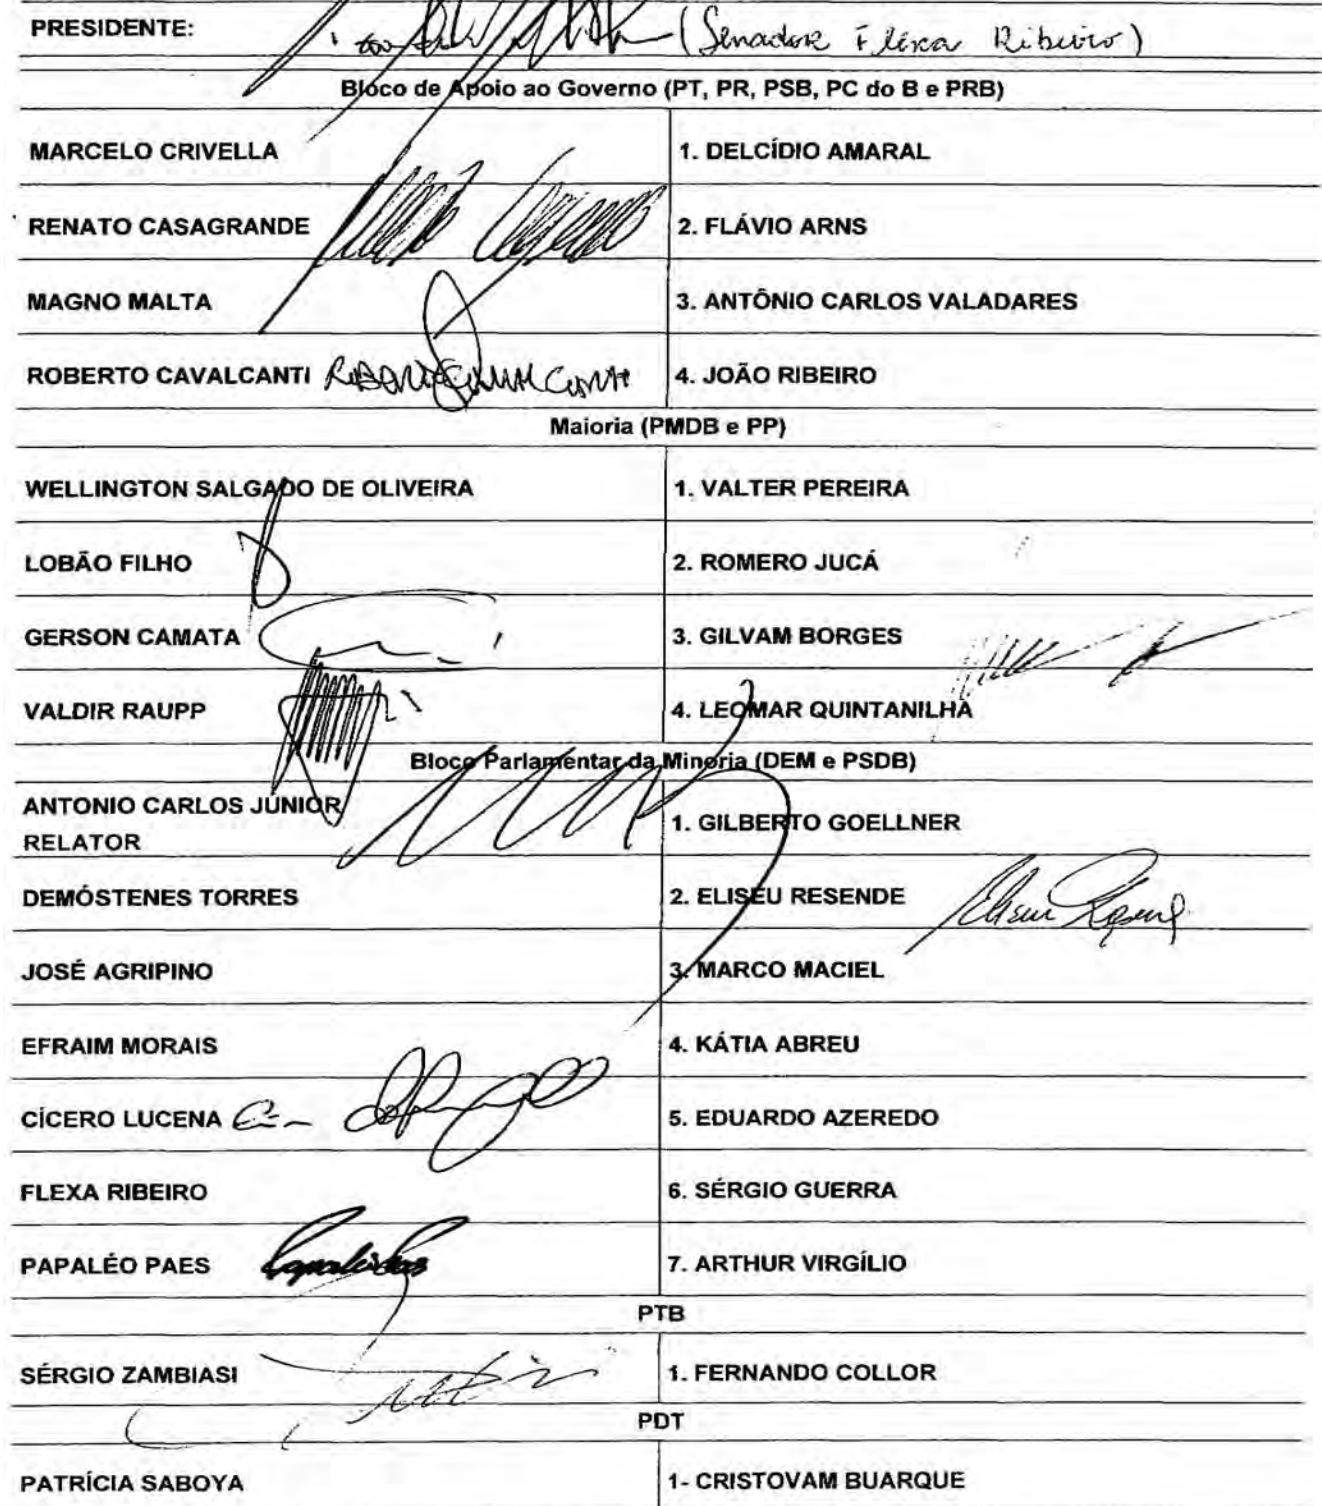 PRESIDENTE: (Senador Flexa Ribeiro)
Bloco de Apoio ao Governo (PT, PR, PSB, PC do B e PRB)
MARCELO CRIVELLA 1. DELCÍDIO AMARAL
RENATO CASAGRANDE 2. FLÁVIO ARNS
MAGNO MALTA 3. ANTÔNIO CARLOS VALADARES
ROBERTO CAVALCANTI 4. JOÃO RIBEIRO
Maioria (PMDB e PP)
WELLINGTON SALGADO DE OLIVEIRA 1. VALTER PEREIRA
LOBÃO FILHO 2. ROMERO JUCÁ
GERSON CAMATA 3. GILVAM BORGES
VALDIR RAUPP 4. LEOMAR QUINTANILHA
Bloco Parlamentar da Minoria (DEM e PSDB)
ANTONIO CARLOS JÚNIOR
RELATOR 1. GILBERTO GOELLNER
DEMÓSTENES TORRES 2. ELISEU RESENDE
JOSÉ AGRIPINO 3. MARCO MACIEL
EFRAIM MORAIS 4. KÁTIA ABREU
CÍCERO LUCENA 5. EDUARDO AZEREDO
FLEXA RIBEIRO 6. SÉRGIO GUERRA
PAPALÉO PAES 7. ARTHUR VIRGÍLIO
PTB
SÉRGIO ZAMBIASI 1. FERNANDO COLLOR
PDT
PATRÍCIA SABOYA 1- CRISTOVAM BUARQUE